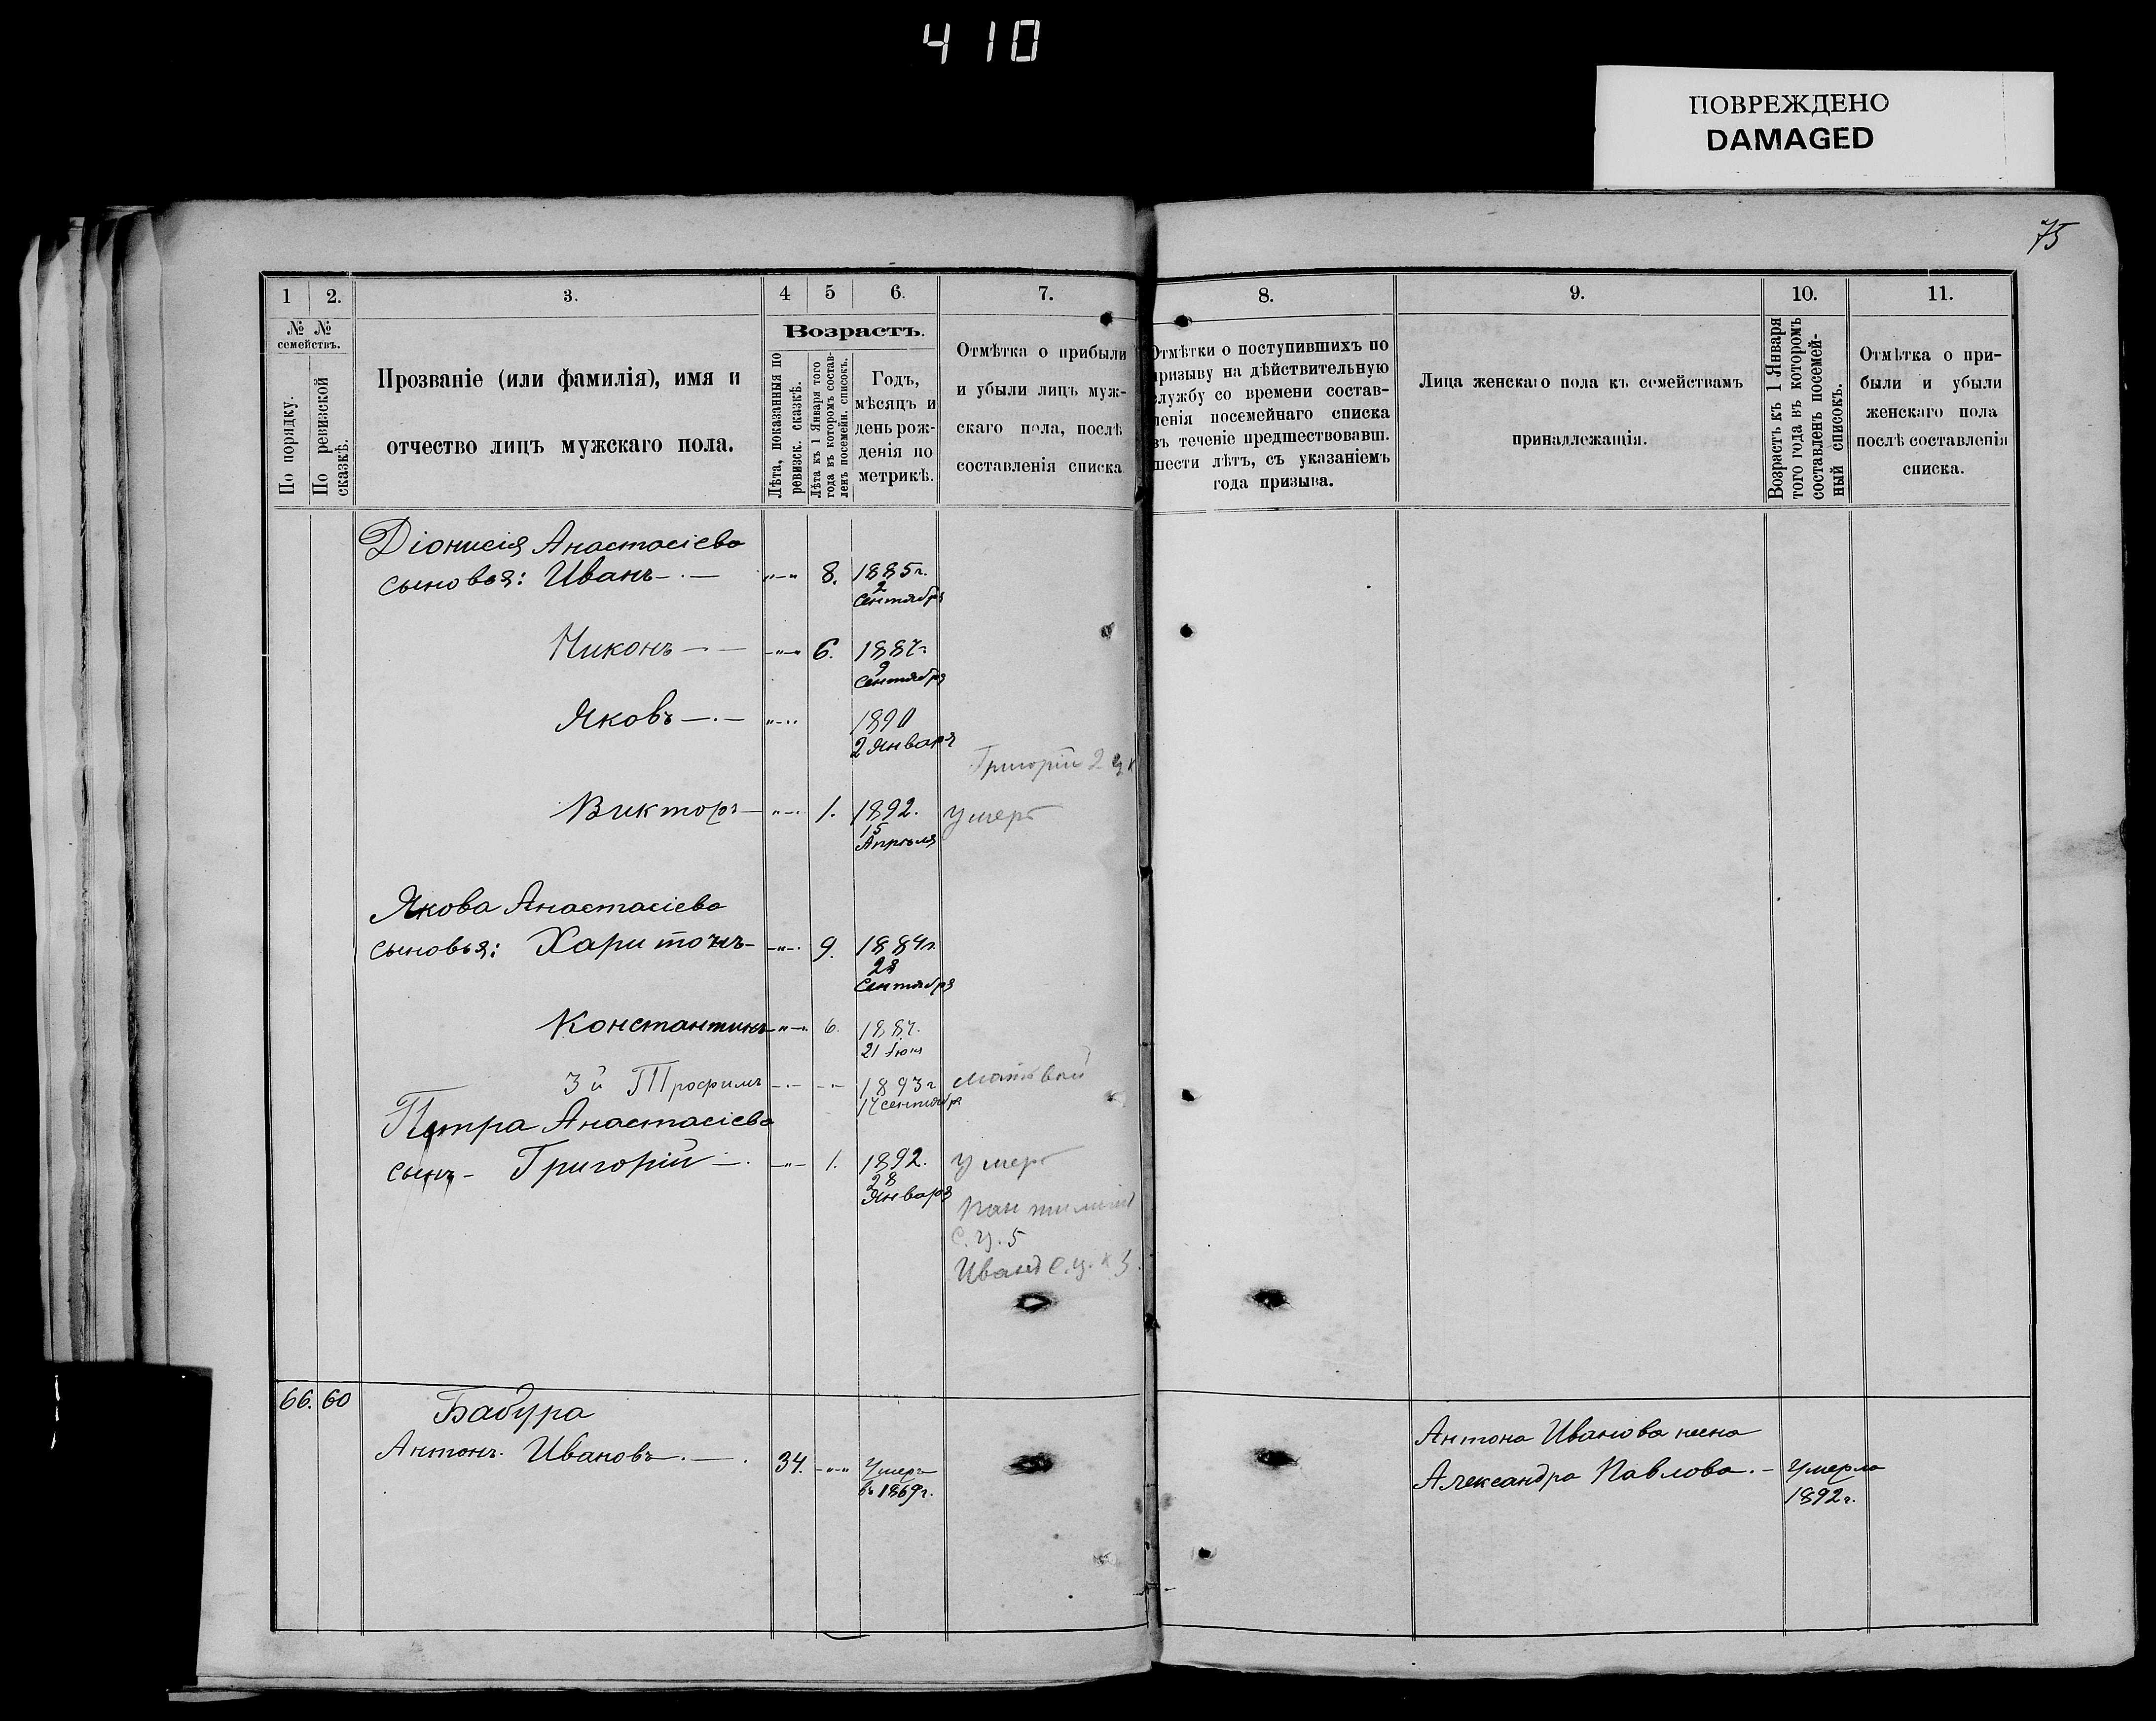 410
ПОВРЕЖДЕНО
DAMAGED
75
1 2. 3. 4 5 6. 7. 8. 9. 10. 11.
№ №
семействъ.
По порядку.
По ревизской
сказкѣ.
Прозваніе (или фамилія), имя и
отчество лицъ мужскаго пола.
Возрастъ.
Лѣта, показанныя по
ревизск. сказкѣ.
Лѣта къ 1 Января того
года въ которомъ состав-
ленъ посемейн. списокъ.
Годъ,
мѣсяцъ и
день рож-
денія по
метрикѣ.
Отмѣтка о прибыли
и убыли лицъ муж-
скаго пола, послѣ
составленія списка
Отмѣтки о поступившихъ по
призыву на дѣйствительную
службу со времени состав-
ленія посемейнаго списка
въ теченіе предшествовавш.
шести лѣтъ, съ указаніемъ
года призыва.
Лица женскаго пола къ семействамъ
принадлежащія.
Возрастъ къ 1 Января
того года въ которомъ
составленъ посемей-
ный списокъ.
Отмѣтка о при-
были и убыли
женскаго пола
послѣ составленія
списка.
Діонисія Анастасіева
сыновья: Иванъ 8. 1885г.
2
Сентября
Никонъ 6. 1887г.
9
Сентября
Яковъ 1890
2 Января
Григорій 2
Викторъ 1. 1892. умеръ
15
Апрѣля
Якова Анастасіева
сыновья: Харитонъ 9. 1884г.
28
Сентября
Константинъ 6. 1887.
21 Іюня
3й Трофимъ 1893г Матвѣй
17 сентября
Петра Анастасіева
сынъ - Григорій 1. 1892. умеръ
28
Января
с. г. 5
Иванъ
66. 60 Бабура
Антонъ Ивановъ 34. Умеръ
въ 1869г.
Антона Иванова жена
Александра Павлова. - Умерла
1892г.